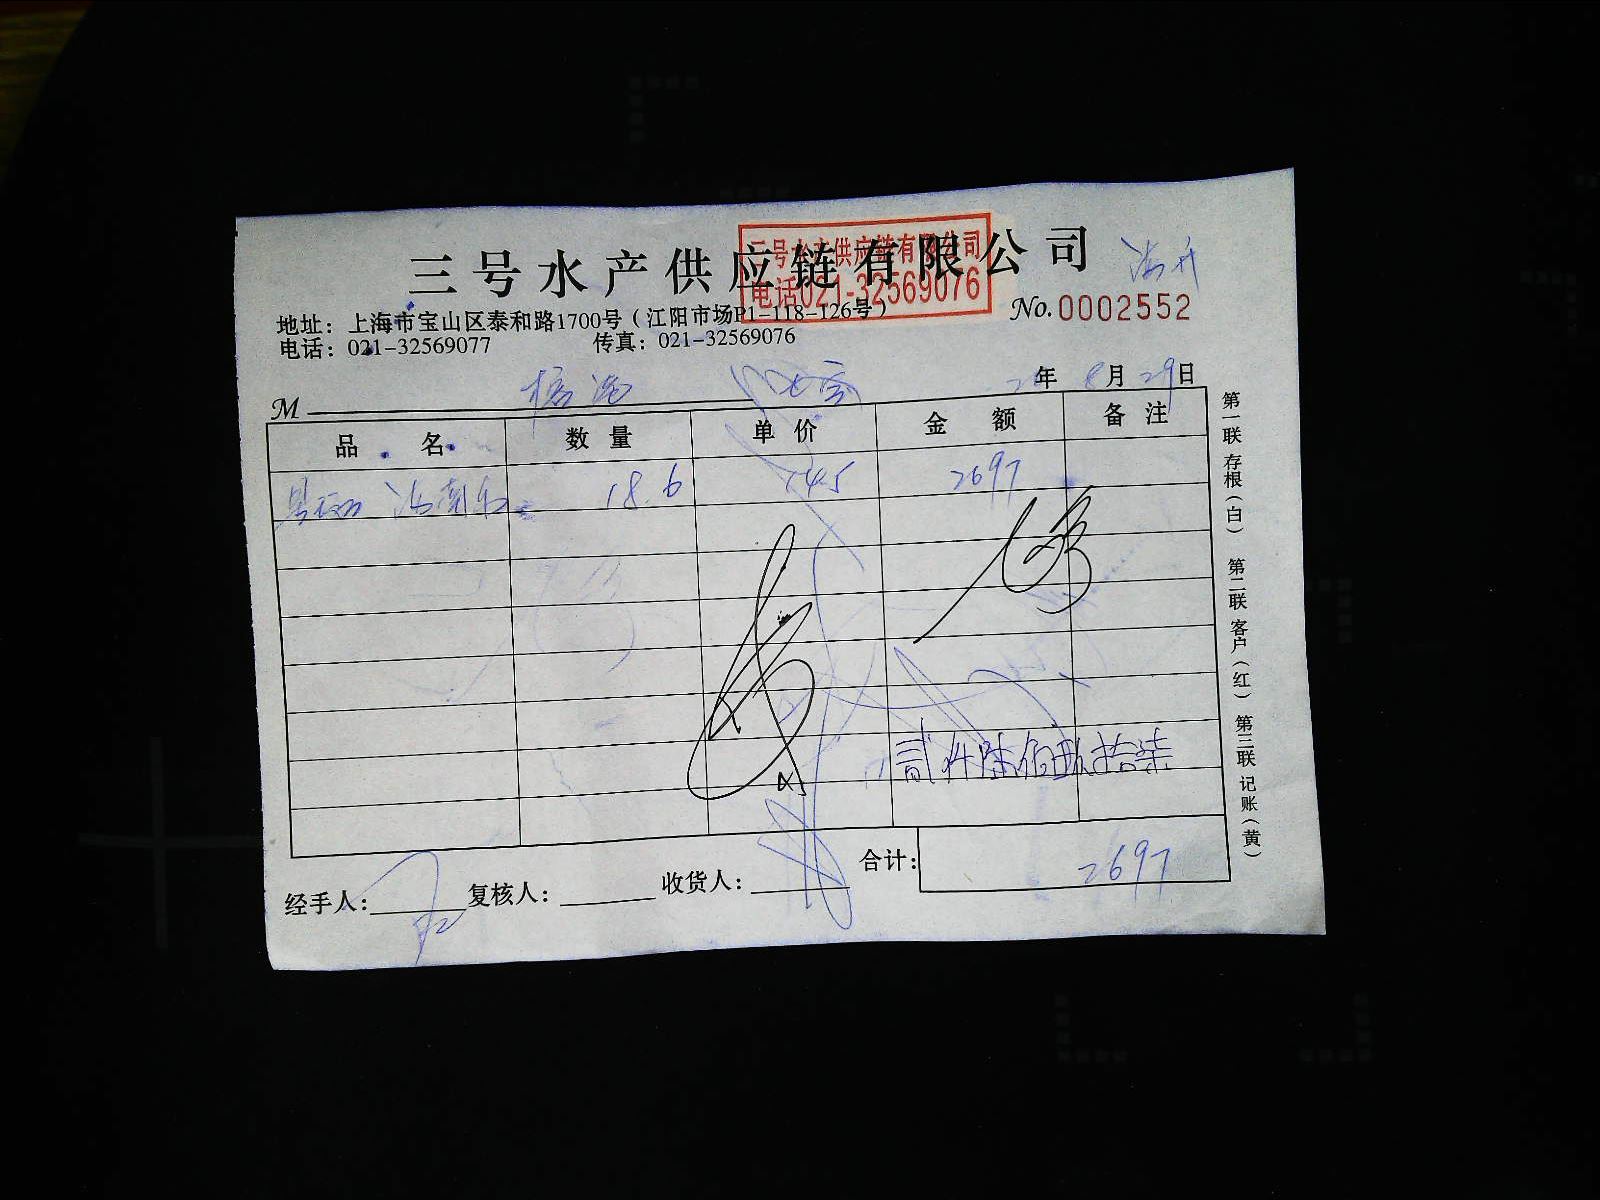 三号水产供应链有限公司
三号水产供应链有限公司
电话021-32569076
地址：上海市宝山区泰和路1700号（江阳市场P1-118-126号）
No.0002552
电话：021-32569077 传真：021-32569076
年 8月29日
M
品名 数量 单价 金额 备注
18.6 145 2697
贰仟陆佰玖拾柒
合计： 2697
经手人： 复核人： 收货人：
第一联 存根（白） 第二联 客户（红） 第三联 记账（黄）